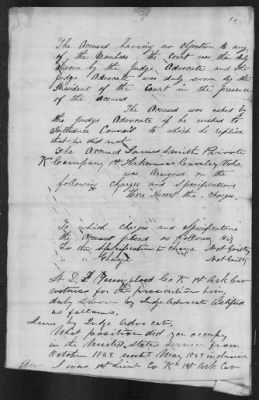 The Accused having no objection to any
of the Members the Court was then duly
sworn by the Judge Advocate and the
Judge Advocate was duly sworn by the
President of the Court in the presence
of the accused
The Accused was asked by
the Judge Advocate if he wished to
Introduce Council to which he replied
that he did not
The Accused James Smith Private
K Company 1st Arkansas Cavalry Vols
was Arraigned on the
following charges and Specifications
Here Insert the Charges
To which charges and specifications
the Accused plead as follows viz
To the Specification to charge Not Guilty
" " Charge Not Guilty
Co K 1st Ark Cav
witness for the prosecution being
duly sworn by Judge Advocate testified
as follows
Ques by Judge Advocate
What position did you occupy
in the United States Service from
October 1862 until May 1863 inclusive
Ans I was 1st Lieut Co K 1st Ark Cav